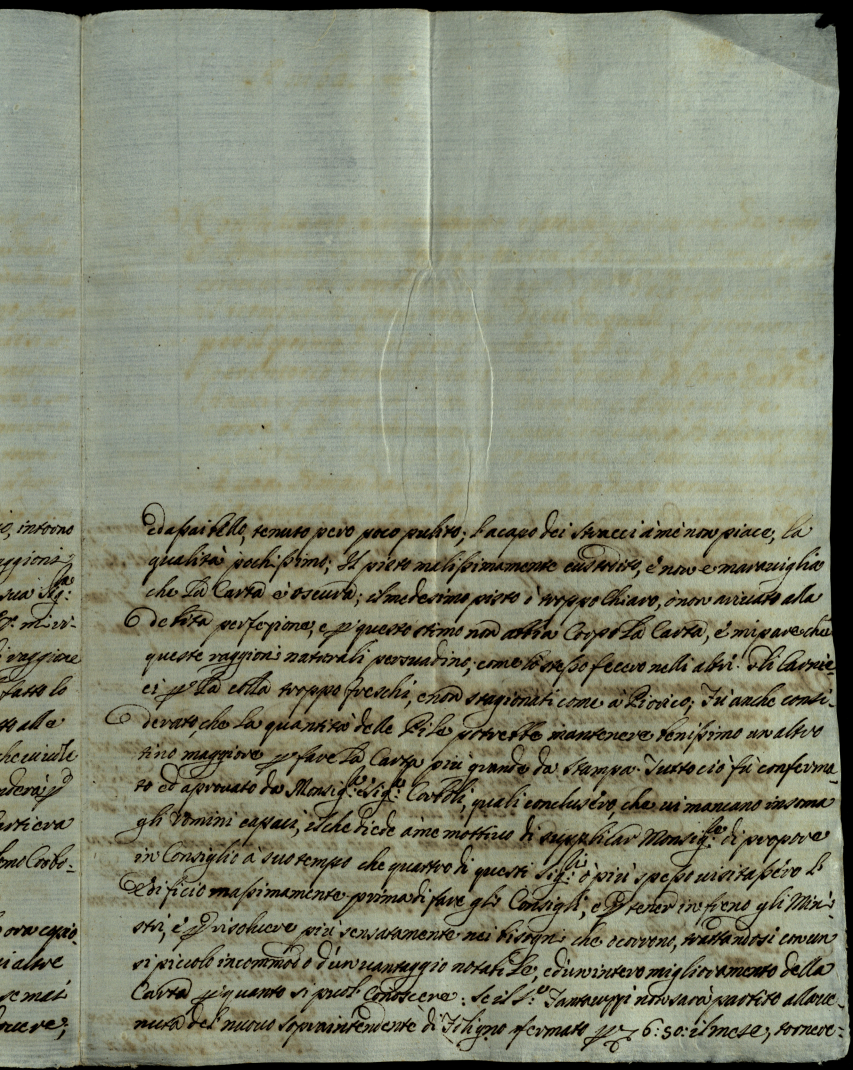 o, intorno
raggioni:
sua Sig:
raggione
fatto lo
to alla
che civile
nderà p
artiera
omo Corbo-
i altre
se mai
overe;
ed assai bello, tenuto però poco pulito; La capo dei stracci à me non piace, la
qualità pochissimo; Il pisto malissimamente custodito, e non è maraviglia
che La Carta è oscura; il medesimo pisto è troppo Chiaro, ò non arivato alla
debita perfezione, e p questo stimo non abbia Corpo La Carta, e mi pare che
queste raggioni naturali persuadino, come lo stesso fecero nelli altri. Li Carnic-
ci p La colla troppo freschi, e non stagionati come à Piorico; Fù anche consi-
derato, che La quantità delle Pile potrebbe mantenere benissimo un altro
tino maggiore p fare La Carta più grande da Stampa. Tutto ciò fù conferma-
to ed aprovato da Monsig.re e Sig.r Corboli, quali conclusero, che vi mancano insoma
gli Uomini capaci, il che diede à me mottivo di supplicar Monsig.re di propore
in Consiglio à suo tempo che quattro di questi Sig.li ò più spesso visitassero l'
Edificio massimamente prima di fare gli Consigli, e p tener in freno gli Mini-
stri, e p risolvere più sensatamente nei bisogni che ocorrono, trattandosi con un
si piccolo incommodo d'un vantaggio notabile, ed un intero miglioramento della
Carta p quanto si può Conoscere: Se il S.r Fantauzzi non sarà partito alla ve-
nuta del nuovo sopraintendente di Foligno fermato p 6:50: il mese, tornere-